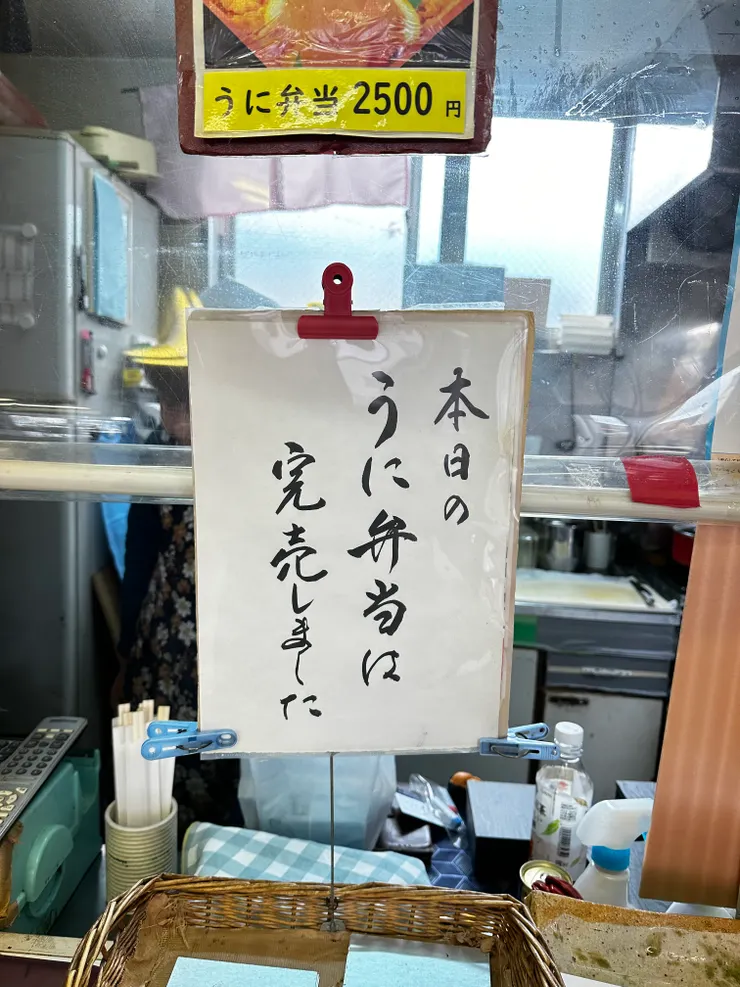 うに弁当 2500 円
本日の
うに弁当は
完売しました